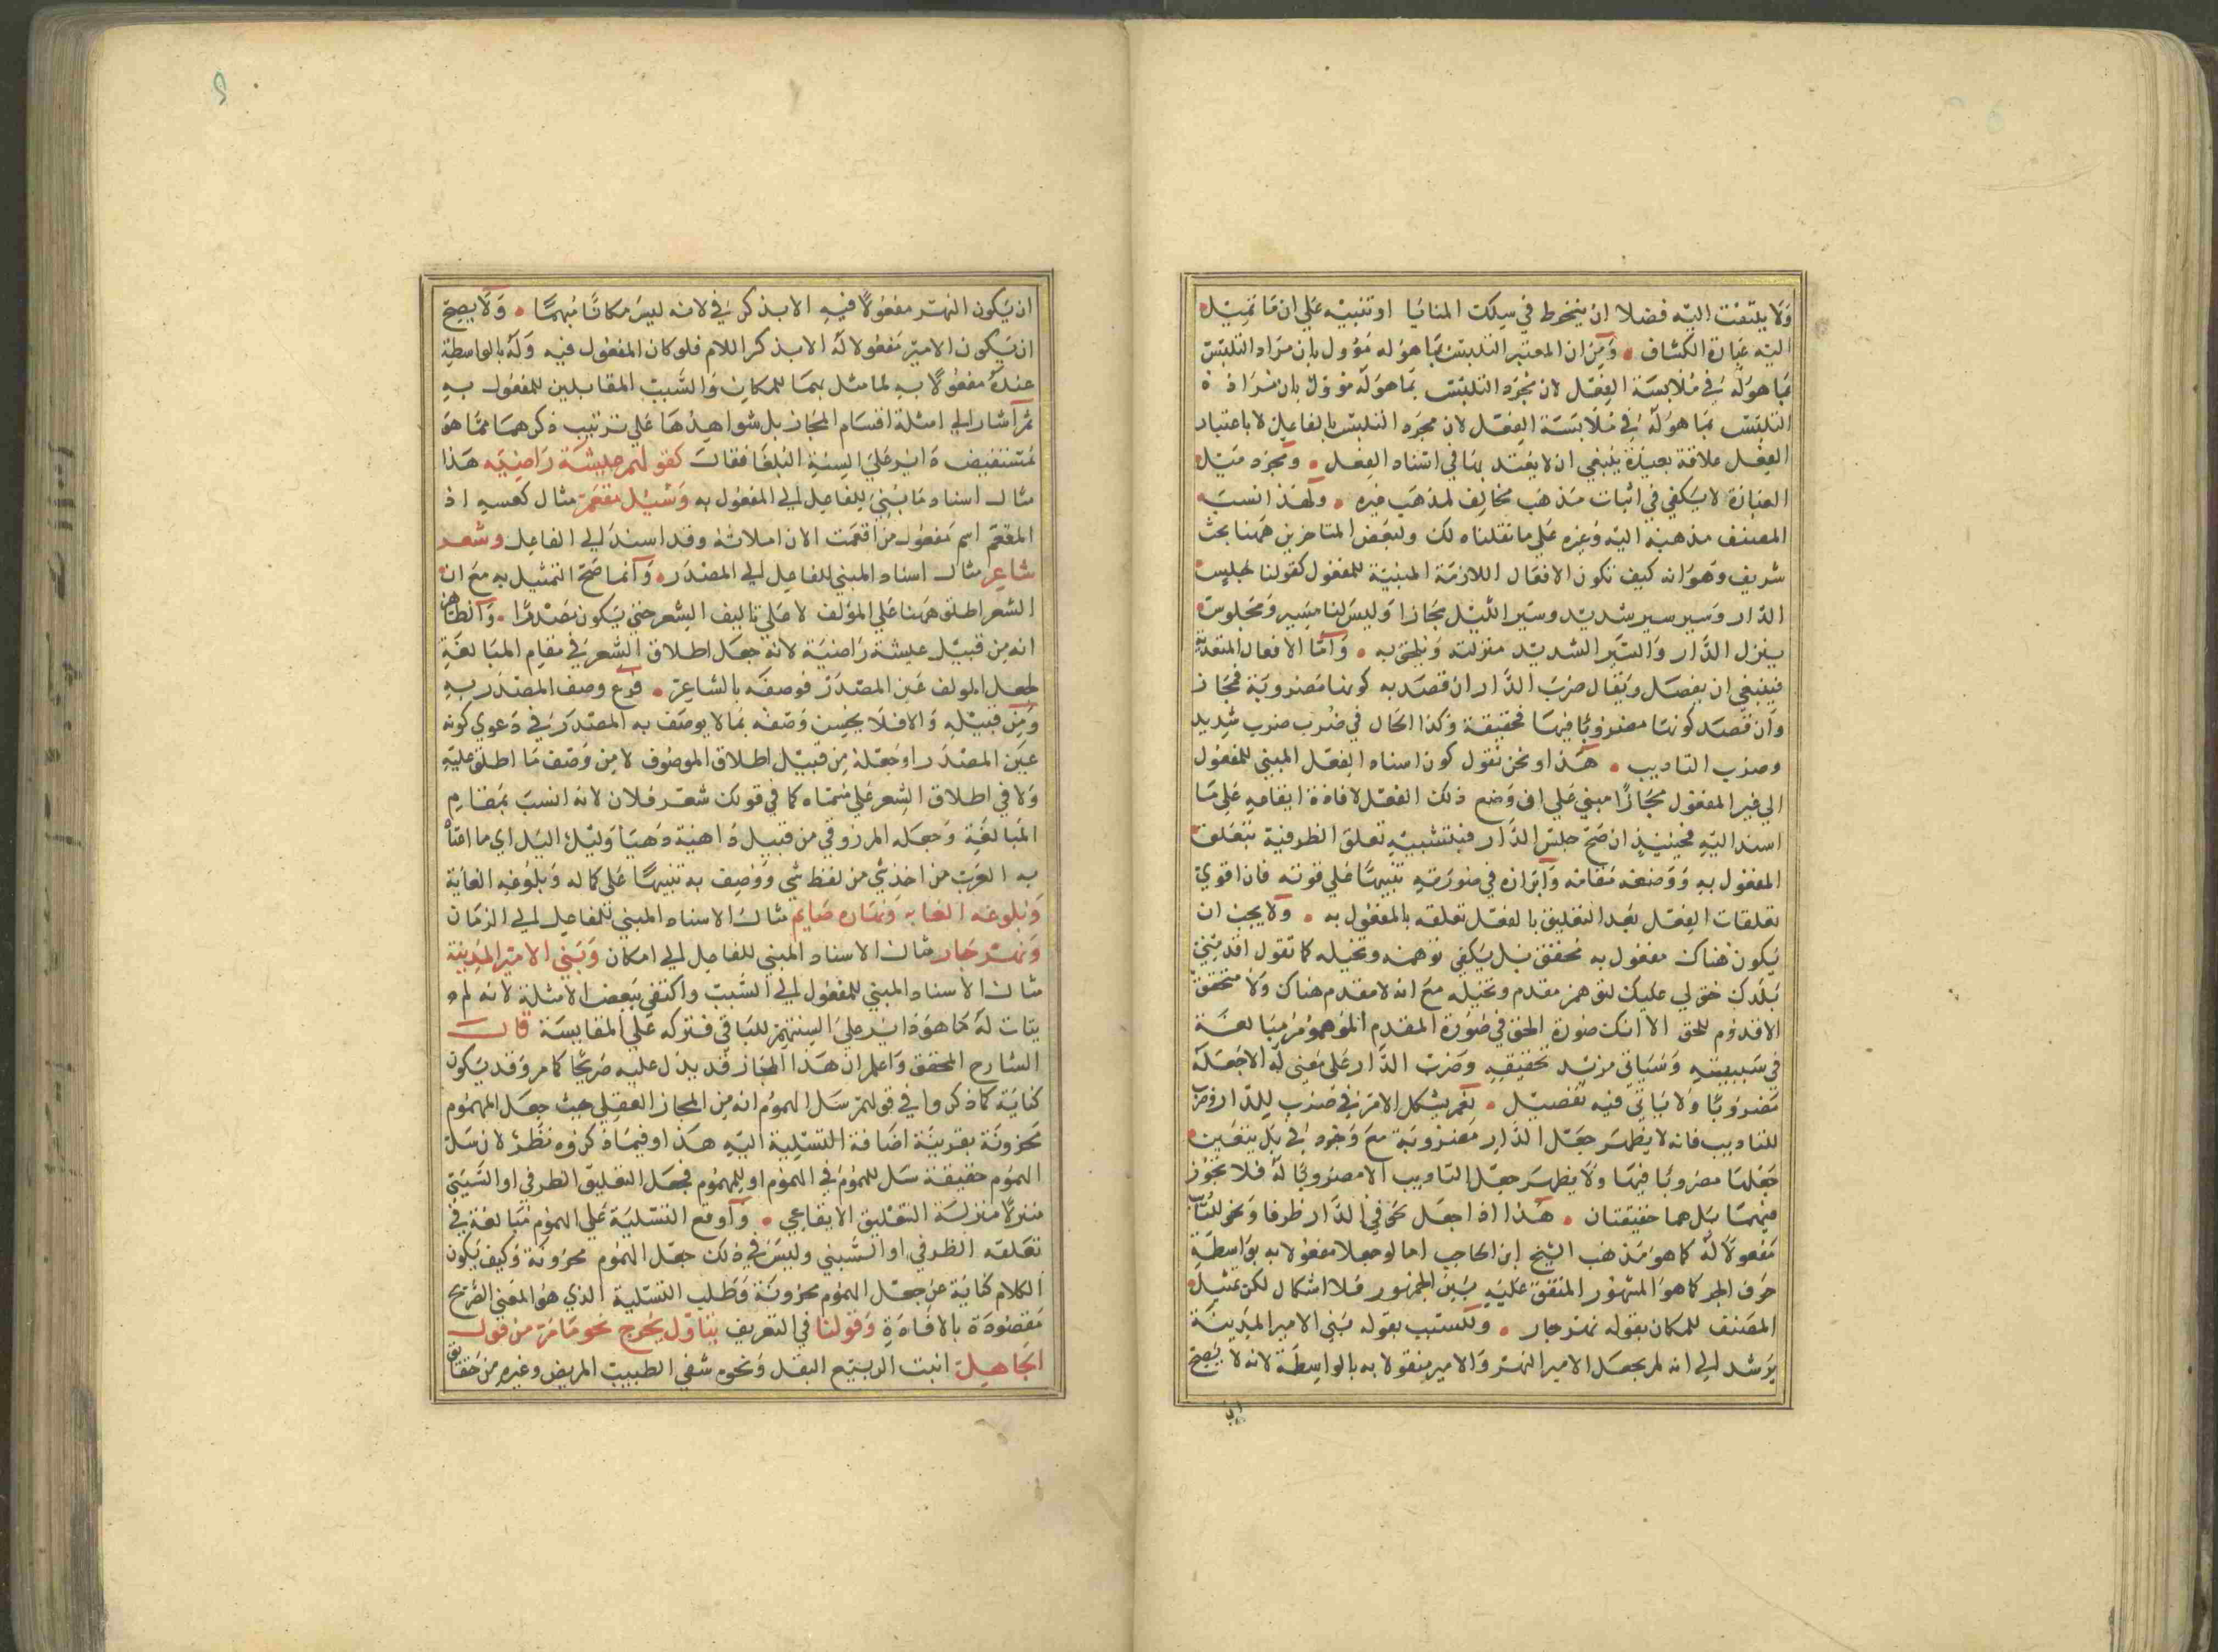 ولا يلتفت اليه فضلا ان ينخرط في سلك المنافيا او تنبيه علي ان ما تميل
اليه عبارة الكشاف ومن ان المعتبر التلبس بما هو له مؤول بان مراد التلبس
بما هو له في ملابسة الفعل لان مجرد التلبس بما هو له مؤول بان مراده
التلبس بما هو له في ملابسة الفعل لان مجرد التلبس بالفاعل لا باعتبار
الفعل علاقة بعيدة ينبغي ان لا يعتد بها في اسناد الفعل ومجرد ميل
العبارة لا يكفي في اثبات مذهب مخالف لمذهب غيره ولهذا نسب
المصنف مذهبه اليه وغيره علي ما نقلناه لك ولبعض المتاخرين ههنا بحث
شريف وهو انه كيف تكون الافعال اللازمة المبنية للمفعول كقولنا جلس
الدار وسير سير شديد وسير الليل مجازا وليس لنا مسير ومجلوس
ينزل الدار والسير الشديد منزلته ويلحق به واما الافعال المتعدية
فينبغي ان يفصل ويقال ضرب الدار ان قصد به كونها مضروبة فمجاز
وان قصد كونها مضروبا فيها فحقيقة وكذا الحال في ضرب ضرب شديد
وضرب التاديب هذا ونحن نقول كون اسناد الفعل المبني للمفعول
الي غير المفعول مجازا مبني علي ان وضع ذلك الفعل لافادة ايقاعه علي ما
اسند اليه فحينئذ ان صح جلس الدار فبتشبيه تعلق الظرفية بتعلق
المفعول به ووضعه مقامه وابرازه في صورته تنبيها علي قوته فان اقوي
تعلقات الفعل بعد التعليق بالفعل تعلقه بالمفعول به ولا يجب ان
يكون هناك مفعول به محقق بل يكفي توهمه وتخيله كما تقول اقدمني
بلدك حق لي عليك لتوهم مقدم وتخيله مع انه لا مقدم هناك ولا متحقق
الا قدوم للحق الا انك صورة الحق في صورة المقدم الموهوم مبالغة
في سببيته وسياتي مزيد تحقيقه وضرب الدار علي معني له الا جعله
مضروبا ولا ياتي فيه تفصيل نعم يشكل الامر في ضرب للدار وضرب
للتاديب فانه لا يظهر جعل الدار مضروبة مع وجود في بل يتعين
جعلها مضروبا فيها ولا يظهر جعل التاديب الا مضروبا له فلا تجوز
فيهما بل هما حقيقتان هذا اذا جعل نحو في الدار ظرفا ونحو للتاديب
مفعولا له كما هو مذهب الشيخ ابن الحاجب اما لو جعلا مفعولا به بواسطة
حرف الجر كما هو المشهور المتفق عليه بين الجمهور فلا اشكال لكن تمثيل
المصنف للمكان بقوله نهر جار وللسبب بقوله بني الامير المدينة
يرشد الي انه لم يجعل الامير النهر والامير مفعولا به بالواسطة لانه لا يصح
ان
ان يكون النهر مفعولا فيه الا بذكر في لانه ليس مكانا مبهما ولا يصح
ان يكون الامير مفعولا له الا بذكر اللام فلو كان المفعول فيه وله بالواسطة
عنده مفعولا به لما مثل بهما للمكان والسبب المقابلين للمفعول به
ثم اشار الي امثلة اقسام المجاز بل شواهدها علي ترتيب ذكرهما مما هو
مستفيض دائر علي السنة البلغا فقال كقولهم عيشة راضية هذا
مثال اسناد ما بني للفاعل الي المفعول به وسيل مفعم مثال لعكسه اذ
المفعم اسم مفعول من افعمت الاناء ملأته وقد اسند الي الفاعل وشعر
شاعر مثال اسناد المبني للفاعل الي المصدر وانما صح التمثيل به مع ان
الشعر اطلق ههنا علي المؤلف لا علي تاليف الشعر حتي يكون مصدرا والظاهر
انه من قبيل عيشة راضية لانه جعل اطلاق الشعر في مقام المبالغة
لجعل المولف عين المصدر فوصفه بالشاعر فرع وصف المصدر به
ومن قبيله والا فلا يحسن وصفه بما لا يوصف به المصدر في دعوي كونه
عين المصدر او جعله من قبيل اطلاق الموصوف لا من وصف ما اطلق عليه
ولا في اطلاق الشعر علي مسماه كما في قولك شعر فلان لانه انسب بمقام
المبالغة وجعله المرزوقي من قبيل داهية دهيا وليل اليل اي ما اعتاد
به العرب من اخذ شي من لفظ شي ووصف به تنبيها علي كماله وبلوغه الغاية
وبلوغه الغايه ونهاره صايم مثال الاسناد المبني للفاعل الي الزمان
ونهر جار مثال الاسناد المبني للفاعل الي امكان وبني الامير المدينة
مثال الاسناد المبني للمفعول الي السبب واكتفي ببعض الامثلة لانه لم
يتات له ما هو دائر علي السنتهم للباقي فتركه علي المقايسة قال
الشارح المحقق واعلم ان هذا المجاز قد يدل عليه صريحا كما مر وقد يكون
كناية كما ذكروا في قولهم سل الهموم انه من المجاز العقلي حيث جعل الهموم
محزونة بقرينة اضافة التسلية اليه هذا وفيما ذكروه نظر لان سل
الهموم حقيقة سل للهموم في الهموم او للهموم فجعل التعليق الظرفي او السببي
منزلا منزلة التعليق الايقاعي واوقع التسلية علي الهموم مبالغة في
تعلقه الظرفي او السببي وليس في ذلك جعل الهموم محزونة وكيف يكون
الكلام كناية عن جعل الهموم محزونة وطلب التسلية الذي هو المعني الصريح
مقصودة بالافادة وقولنا في التعريف بتاول يخرج نحو ما مر من قول
الجاهل انبت الربيع البقل ونحوه شفي الطبيب المريض وغيره من حقائق